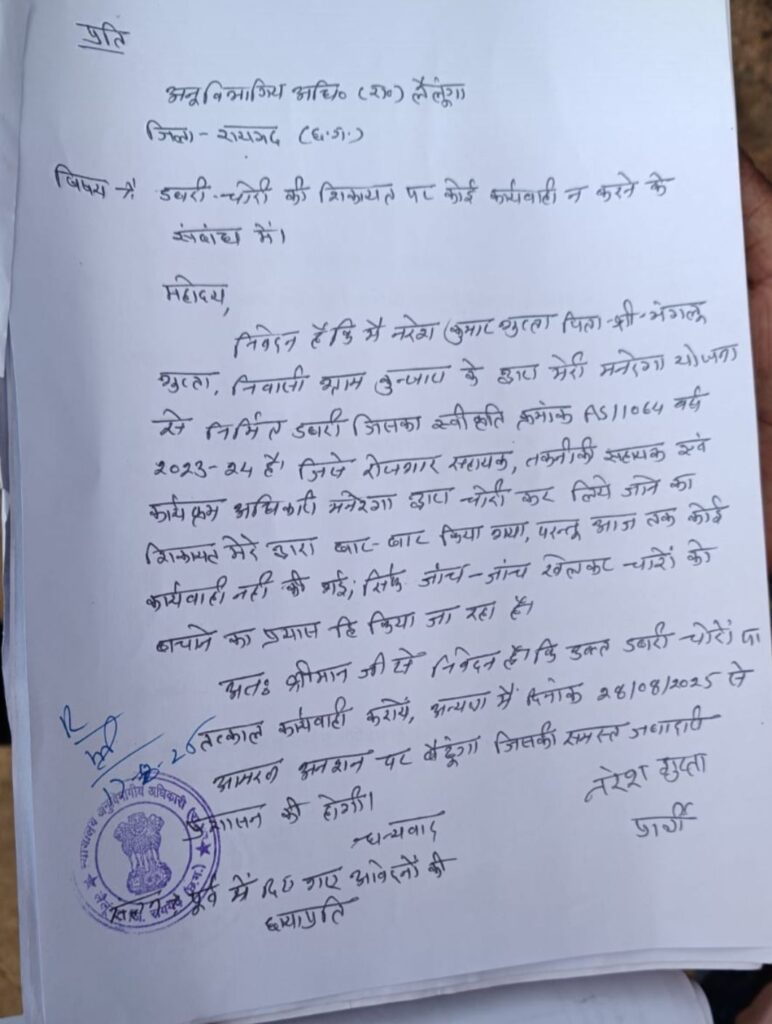 प्रति
अनुविभागिय अधि० (रा०) लैलूंगा
जिला - रायगढ़ (छ.ग.)
विषय :- डबरी-चोरी की शिकायत पर कोई कार्यवाही न करने के
संबंध में।
महोदय,
निवेदन है कि मैं नरेश कुमार गुप्ता पिता-श्री-मंगलू
गुप्ता, निवासी ग्राम कुन्जारा के द्वारा मेरी मनरेगा योजना
से निर्मित डबरी जिसका स्वीकृति क्रमांक AS/1064 वर्ष
2023-24 है। जिसे रोजगार सहायक, तकनीकी सहायक एवं
कार्यक्रम अधिकारी मनरेगा द्वारा चोरी कर लिये जाने का
शिकायत मेरे द्वारा बार-बार किया गया, परन्तु आज तक कोई
कार्यवाही नहीं की गई; सिर्फ जांच-जांच खेलकर चोरों को
बचाने का प्रयास हि किया जा रहा है।
अतः श्रीमान जी से निवेदन है कि उक्त डबरी चोरों पर
तत्काल कार्यवाही करायें, अन्यथा मैं दिनांक 28/08/2025 से
आमरण अनशन पर बैठूंगा जिसकी समस्त जवाबदारी
प्रशासन की होगी।
धन्यवाद
नरेश गुप्ता
प्रार्थी
पूर्व में दिए गए आवेदनों की
छायाप्रति
न्यायालय अनुविभागीय अधिकारी